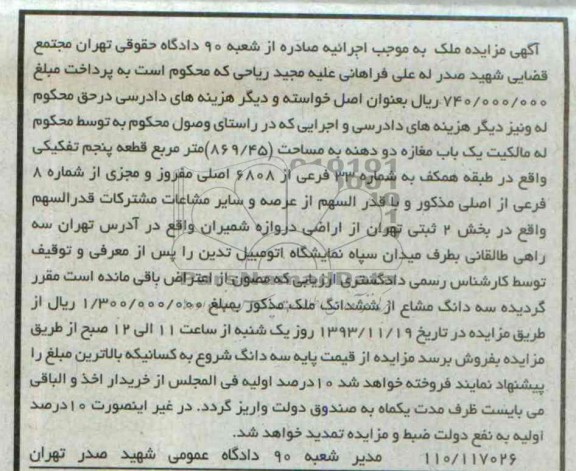 آگهی مزایده ملک به موجب اجرائیه صادره از شعبه ۹۰ دادگاه حقوقی تهران مجتمع
قضایی شهید صدر له علی فراهانی علیه مجید ریاحی که محکوم است به پرداخت مبلغ
۷۴۰/۰۰۰/۰۰۰ ریال بعنوان اصل خواسته و دیگر هزینه های دادرسی درحق محکوم
له ونیز دیگر هزینه های دادرسی و اجرایی که در راستای وصول محکوم به توسط محکوم
له مالکیت یک باب مغازه دو دهنه به مساحت (۸۶۹/۴۵)متر مربع قطعه پنجم تفکیکی
واقع در طبقه همکف به شماره ۳۳ فرعی از ۶۸۰۸ اصلی مفروز و مجزی از شماره ۸
فرعی از اصلی مذکور و با قدر السهم از عرصه و سایر مشاعات مشترکات قدرالسهم
واقع در بخش ۲ ثبتی تهران از اراضی دروازه شمیران واقع در آدرس تهران سه
راهی طالقانی بطرف میدان سپاه نمایشگاه اتومبیل تدین را پس از معرفی و توقیف
توسط کارشناس رسمی دادگستری ارزیابی که مصون از اعتراض باقی مانده است مقرر
گردیده سه دانگ مشاع از ششدانگ ملک مذکور بمبلغ ۱/۳۰۰/۰۰۰/۰۰۰ ریال از
طریق مزایده در تاریخ ۱۳۹۳/۱۱/۱۹ روز یک شنبه از ساعت ۱۱ الی ۱۲ صبح از طریق
مزایده بفروش برسد مزایده از قیمت پایه سه دانگ شروع به کسانیکه بالاترین مبلغ را
پیشنهاد نمایند فروخته خواهد شد ۱۰درصد اولیه فی المجلس از خریدار اخذ و الباقی
می بایست ظرف مدت یکماه به صندوق دولت واریز گردد. در غیر اینصورت ۱۰درصد
اولیه به نفع دولت ضبط و مزایده تمدید خواهد شد.
۱۱۰/۱۱۷۰۲۶ مدیر شعبه ۹۰ دادگاه عمومی شهید صدر تهران